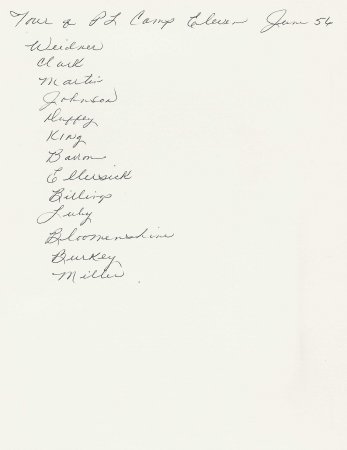 Tour & PL Camp Eleven June 56
Weidner
Clark
Martin
Johnson
Duffey
King
Baron
Ellersick
Billings
Luby
Bloomenshine
Burkey
Miller